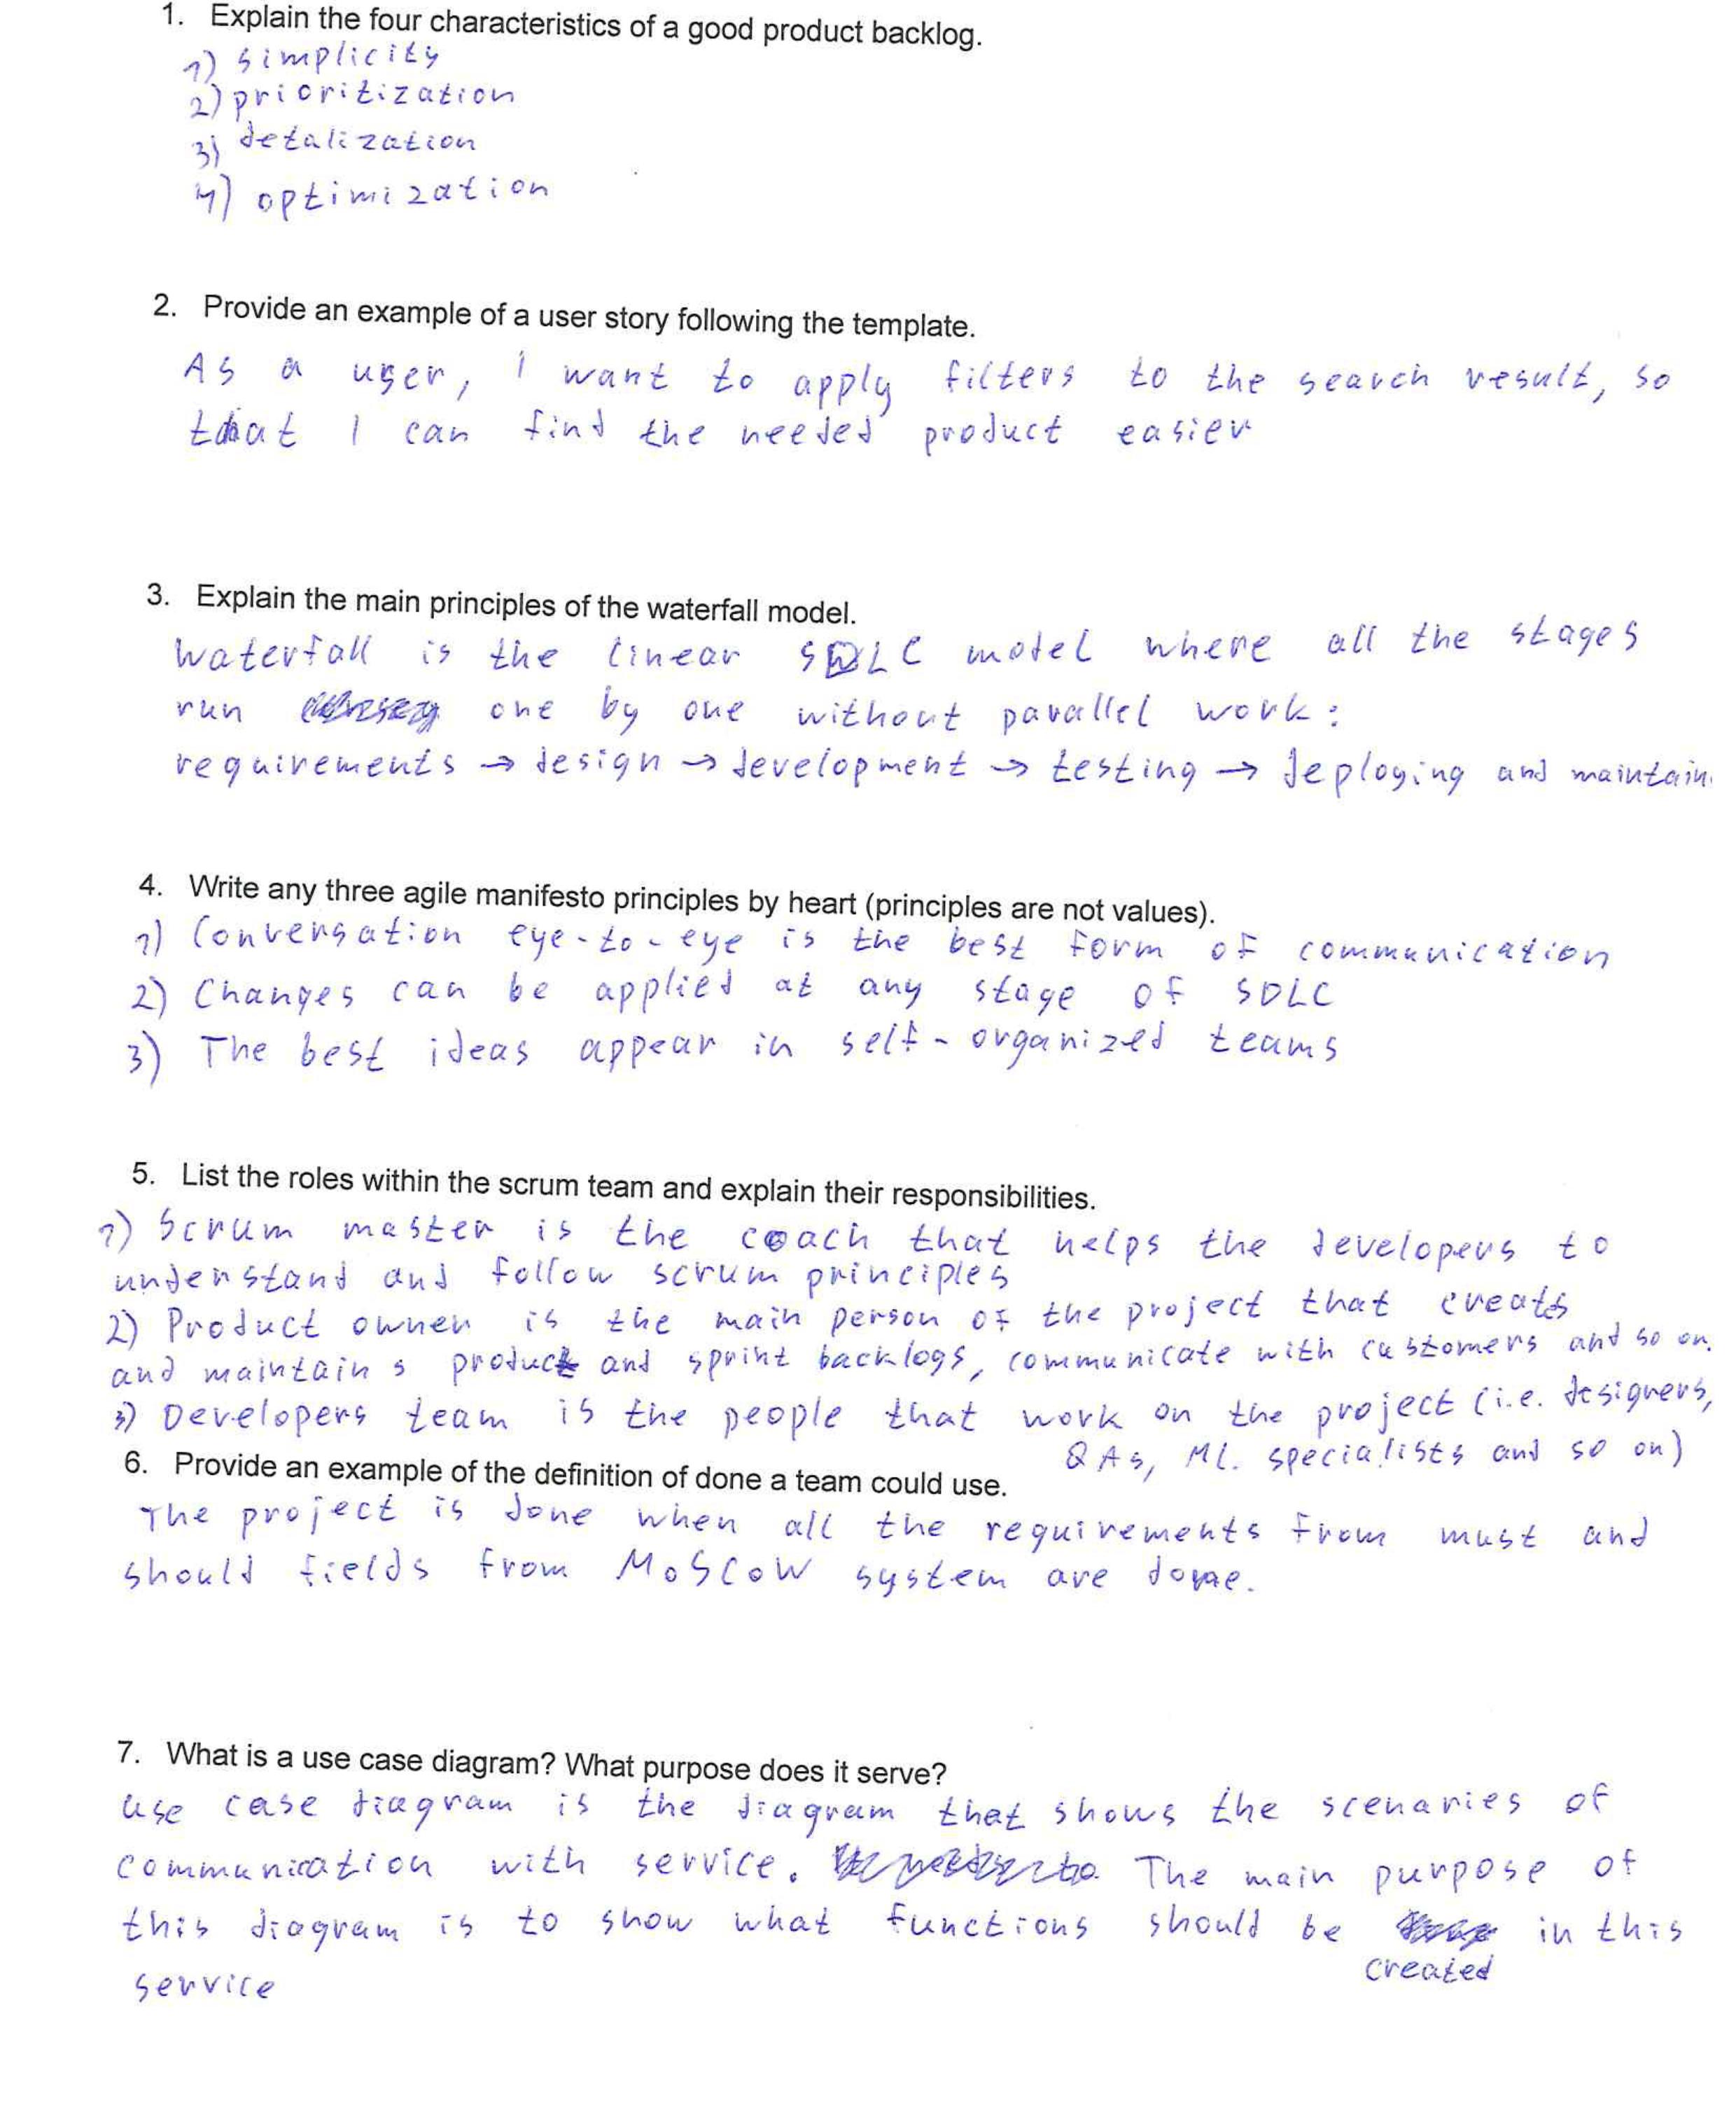 1. Explain the four characteristics of a good product backlog.
1) simplicity
2) prioritization
3) detalization
4) optimization
2. Provide an example of a user story following the template.
As a user, I want to apply filters to the search result, so
that I can find the needed product easier
3. Explain the main principles of the waterfall model.
Waterfall is the linear SDLC model where all the stages
run one by one without parallel work:
requirements → design → development → testing → deploying and maintain
4. Write any three agile manifesto principles by heart (principles are not values).
1) Conversation eye-to-eye is the best form of communication
2) Changes can be applied at any stage of SDLC
3) The best ideas appear in self-organized teams
5. List the roles within the scrum team and explain their responsibilities.
1) Scrum master is the coach that helps the developers to
understand and follow scrum principles
2) Product owner is the main person of the project that creats
and maintains product and sprint backlogs, communicate with customers and so on.
3) Developers team is the people that work on the project (i.e. designers,
QAs, ML specialists and so on)
6. Provide an example of the definition of done a team could use.
The project is done when all the requirements from must and
should fields from MoSCoW system are done.
7. What is a use case diagram? What purpose does it serve?
Use case diagram is the diagram that shows the scenaries of
communication with service. The main purpose of
this diagram is to show what functions should be created in this
service